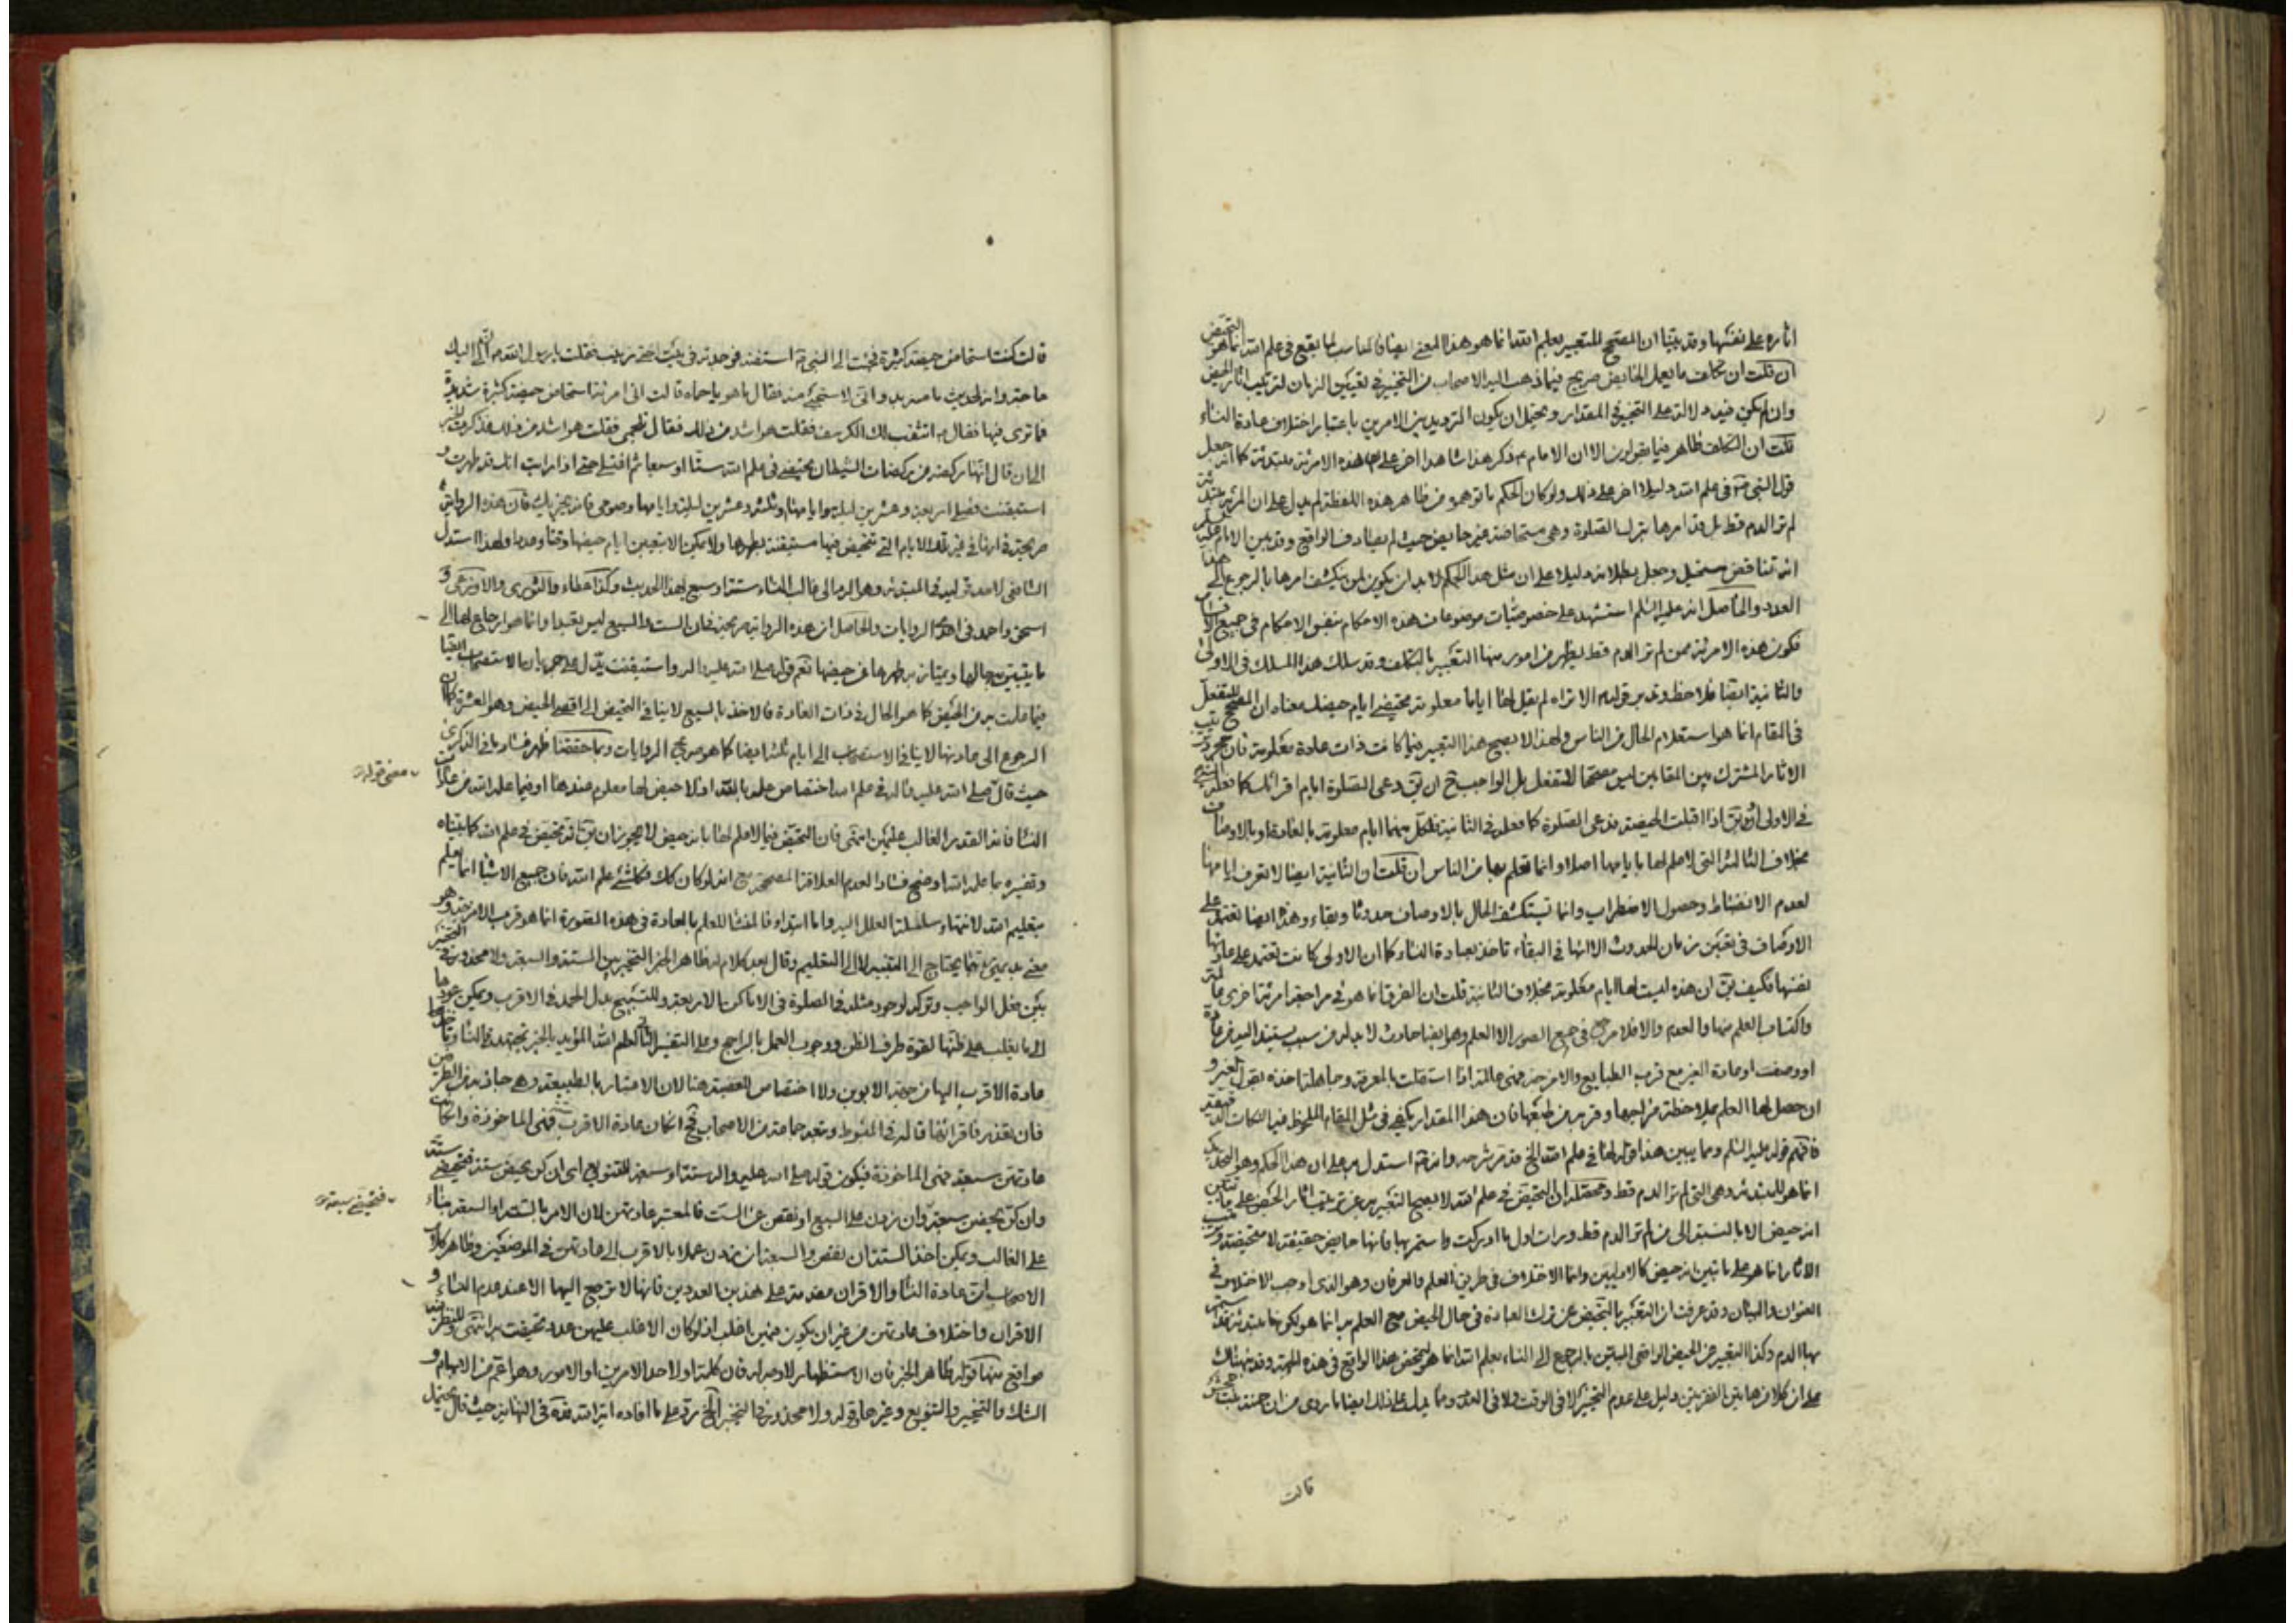 اثاره على نفسها وقد بينا ان المصحح للتعبير بعلم الله انما هو هذا المعنى ايضا فالمناسب لما يقع في علم الله انما هو التحيض
ان قلت ان تكلف ما يعمل الحايض صريح فيما ذهب اليه الاصحاب من التخيير في تعيين الزمان لترتيب اثار الحيض
وان لم يكن فيه دلالة على التخيير في المقدار ويحتمل ان يكون الترديد بين الامرين باعتبار اختلاف عادة النساء
قلت ان التكلف ظاهر فيما يقولون الا ان الامام ذكر هذا شاهدا اخر على ان هذه الامرئة مبتدئة كما انه جعل
قول النبي في علم الله دليلا اخر على ذلك ولو كان الحكم ما توهموه من ظاهر هذه اللفظة لم يدل على ان المرئة مبتدئة
لم تر الدم قط بل قد امرها بترك الصلوة وهي مستحاضة غير حايض حيث لم يصادف الواقع وقد بين الامام عليه السلم
انه تناقض مستحيل وجعل بطلانه دليلا على ان مثل هذا الحكم لابد ان يكون لمن ينكشف امرها بالرجوع الى هذا
العدد والحاصل انه عليه السلم استشهد على خصوصيات موضوعات هذه الاحكام بنفس الاحكام في جميع الاقسام
فكون هذه الامرئة ممن لم تر الدم قط يظهر من امور منها التعبير بالتكلف وقد سلك هذا المسلك في الاولى
والثانية ايضا فلاحظ وتدبر قوله الا تراه لم يقل لها اياما معلومة تحيضي ايام حيضك معناه ان المصحح للتفعل
في المقام انما هو استعلام الحال من الناس ولهذا لا يصح هذا التعبير فيما كانت ذات عادة معلومة فان مجرد ترتيب
الاثار المشترك بين المقامين ليس مصححا للتفعل بل الواجب ح ان يق دعي الصلوة ايام اقرائك كما فعله النبي
في الاولى او يق اذا اقبلت الحيضة فدعي الصلوة كما فعله في الثانية فلكل منهما ايام معلومة بالعادة او بالاوصاف
بخلاف الثالثة التي لا علم لها بايامها اصلا وانما تعلم بها من الناس ان قلت ان الثانية ايضا لا تعرف ايامها
لعدم الانضباط وحصول الاضطراب وانما تستكشف الحال بالاوصاف حدوثا وبقاء وهذه ايضا تعتمد على
الاوصاف في تعيين زمان الحدوث الا انها في البقاء تاخذ بعادة النساء كما ان الاولى كانت تعتمد على عادتها
نفسها فكيف يق ان هذه ليست لها ايام معلومة بخلاف الثانية قلت ان الفرق انما هو في مراجعة امرئة اخرى
واكتساب العلم منها والعدم والا فلا مرجع في جميع الصور الا العلم وهو ايضا حادث لا بد له من سبب يستند اليه من عادة
او وصف او عادة الغير مع قرب الطبايع والامزجة فهي عالمة اذا استقلت بالمعرفة وجاهلة اخذه بقول الغير و
ان حصل لها العلم بملاحظة مزاجها وقربه من طبعها فان هذا المقدار يكفي في مثل المقام الملحوظ فيه النكات الدقيقة
فافهم قوله عليه السلم ومما يبين هذا قوله لها في علم الله الخ قد مر شرحه وانه استدل به على ان هذا الحكم وهو التحديد
انما هو للمبتدئة وهي التي لم تر الدم قط وان التحيض في علم الله لا يصح التعبير به عن ترتيب اثار الحيض على ما تبين
انه حيض الا بالنسبة الى من لم تر الدم قط ورات اول ما ادركت واستمر بها فانها حايض حقيقة لا متحيضة وترتيب
الاثار انما هو على ما تبين انه حيض كالاوليين وانما الاختلاف في طريق العلم والعرفان وهو الذي اوجب الاختلاف في
العنوان والبيان وقد عرفت ان التعبير بالتحيض عن ترك العبادة في حال الحيض مع العلم به انما هو لكونها مبتدئة قد استمر
بها الدم وكذا التعبير عن الحيض الواقعي المبين بالرجوع الى النساء بعلم الله انما هو لمحض هذا الواقع في هذه المرتبة وقد نبهناك
على ان كلا من هاتين الفقرتين دليل على عدم التخيير لا في الوقت ولا في العدد ومما يدل على ذلك ايضا ما روي من ان حمنة بنت جحش
قالت
قالت كنت استحاض حيضة كثيرة فجئت الى النبي استفتيه فوجدته في بيت اختي زينب فقلت يا رسول الله ان لي اليك
حاجة وانه لحديث ما منه بد واني لاستحيي منه فقال ما هو يا حمناه قالت اني امرئة استحاض حيضة كثيرة شديدة
فما ترى فيها فقال انعت لك الكرسف فقلت هو اشد من ذلك فقال تلجمي فقلت هو اشد من ذلك فذكرت الخبر
الى ان قال انها ركضة من ركضات الشيطان تحيضي في علم الله ستا او سبعا ثم اغتسلي حتى اذا رايت انك قد طهرت و
استيقنت فصلي اربعة وعشرين ليلة وايامها او ثلثة وعشرين ليلة وايامها وصومي فانه يجزيك فان هذه الرواية
صريحة في انها في غير تلك الايام التي تتحيض فيها مستيقنة بطهرها ولا يمكن الا بتعيين ايام حيضها وقتا وعددا ولهذا استدل
الشافعي لاحد قوليه في المبتدئة وهو الرد الى غالب النساء ستة او سبع بهذا الحديث وكذا عطاء والثوري والاوزاعي و
اسحق واحمد في احدى الروايات والحاصل ان هذه الرواية صريحة فان الست والسبع ليس تعبدا وانما هو ارجاع لها الى
ما يتبين به حالها ويمتاز به طهرها عن حيضها نعم قوله صلى الله عليه واله واستيقنت يدل على جريان الاستصحاب ايضا
فيما قلت به من الحيض كما هو الحال في ذات العادة فالاخذ بالسبع لا ينافي التحيض الى اقصى الحيض وهو العشرة كما ان
الرجوع الى عادتها لا ينافي الاستصحاب الى ايام ثلثة ايضا كما هو صريح الروايات وبما حققنا ظهر فساد ما في الذكرى
حيث قال صلى الله عليه واله في علم الله اختصاص علمه بالله اذ لا حيض لها معلوم عندها او فيما علمك الله من عادات
النسا فانه القدر الغالب عليهن انتهى فان التحيض فيما لا علم لها بانه حيض لا يجوز ان يق انه تحيض في علم الله كما بيناه
وتفسيره بما علمك الله اوضح فسادا لعدم العلاقة المصححة مع انه لو كان كك فكلشئ علم الله فان جميع الاشياء انما يعلم
بتعليم الله لانتهاء سلسلة العلل اليه واما ابتداء فالمنشا للعلم بالعادة في هذه الصورة انما هو قرب الامزجة وهو
معنى بديهي انما يحتاج الى التنبيه لا الى التعليم وقال بعد كلام له ظاهر الخبر التخيير بين الستة والسبعة ولا محذور في التخيير
بين فعل الواجب وتركه لوجود مثله في الصلوة في الاماكن الاربعة والتسبيح بدل الحمد في الاقرب ويمكن عودها
الى ما يغلب على ظنها لقوة طرف الظن ووجوب العمل بالراجح وعلى التفسير الثاني لعلم الله المؤيد بالخبر تجتهد في النساء وتاخذ
عادة الاقرب اليها من جهة الابوين ولا اختصاص للعصبة هنا لان الاعتبار بالطبيعة وهي جاذبة من الطرفين
فان تعذر فاقرانها قاله في المبسوط وتبعه جماعة من الاصحاب فح ان كان عادة الاقرب فهي الماخوذة وان كانت
عادتهن سبعة فهي الماخوذة فيكون قوله صلى الله عليه واله ستة او سبعة للتنويع اي ان كن يحيضن ستة فتحيضي ستة
وان كن يحيضن سبعة وان زدن على السبع او نقصن عن الست فالمعتبر عادتهن لان الامر بالستة او السبعة بناء
على الغالب ويمكن اخذ الستة ان نقصن والسبعة ان زدن عملا بالاقرب الى عادتهن في الموضعين وظاهر كلام
الاصحاب ان عادة النسا والاقران مقدمة على هذين العددين فانها لا ترجع اليها الا عند عدم النساء و
الاقران واختلاف عادتهن من غير ان يكون فيهن اغلب اذ لو كان الاغلب عليهن عدد تحيضت به انتهى وللنظر فيه
مواقع منها قوله ظاهر الخبر فان الاستظهار لا وجه له فان كلمة او لاحد الامرين او الامور وهو اعم من الابهام و
الشك والتخيير والتنويع وغيرها وقوله ولا محذور في التخيير الخ يرد على ما افاده اية الله في النهاية حيث قال يحتمل
معنى قوله
فتحيضي سبعة